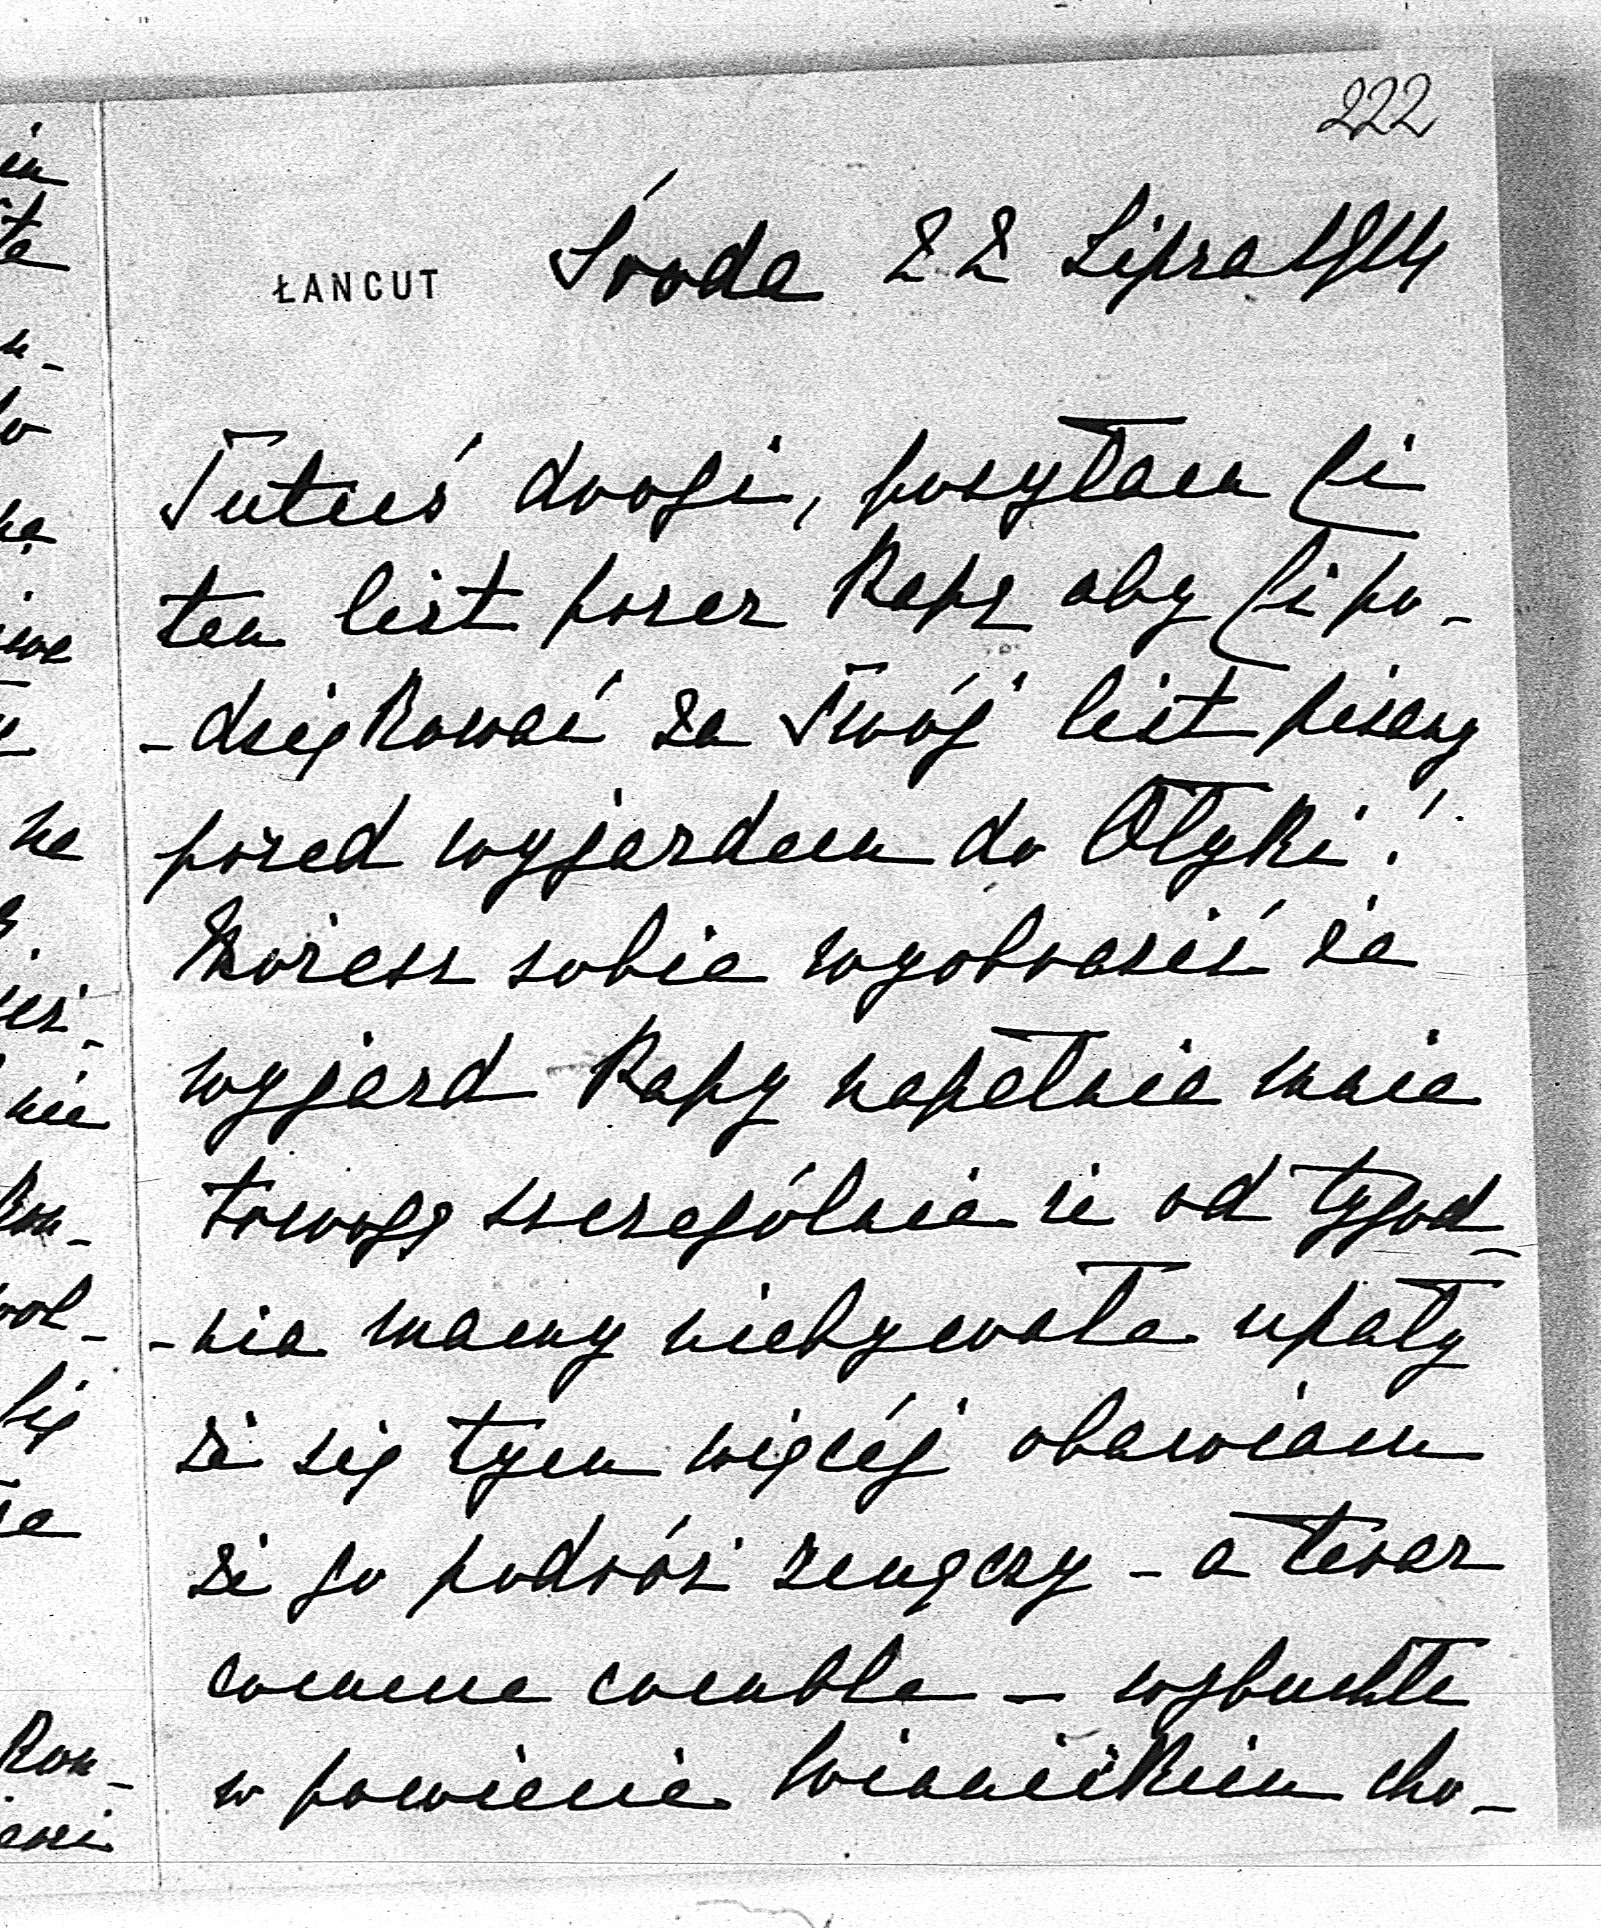 222
ŁANCUT Środa 22 Lipca 1914
Tutuś drogi, posyłam Ci
ten list przez Papę aby Ci po-
-dziękować za Twój list pisany
przed wyjazdem do Ołyki!
Możesz sobie wyobrazić że
wyjazd Papy napełnia mnie
trwogą szczególnie że od tygod-
-nia mamy niebywałe upały
że się tym więcéj obawiam
że go podróż zmęczy - a teraz
comme comble - wybuchła
w powiecie Winnickim cho-